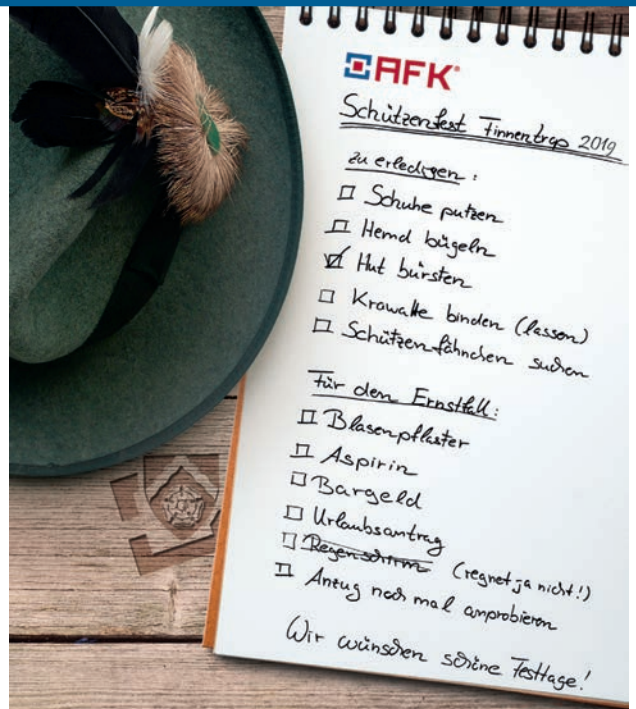 AFK
Schützenfest Finnentrop 2019
zu erledigen:
Schuhe putzen
Hemd bügeln
Hut bürsten
Krawatte binden (lassen)
Schützenfähnchen suchen
Für den Ernstfall:
Blasenpflaster
Aspirin
Bargeld
Urlaubsantrag
Regenschirm (regnet ja nicht!)
Anzug noch mal anprobieren
Wir wünschen schöne Festtage!